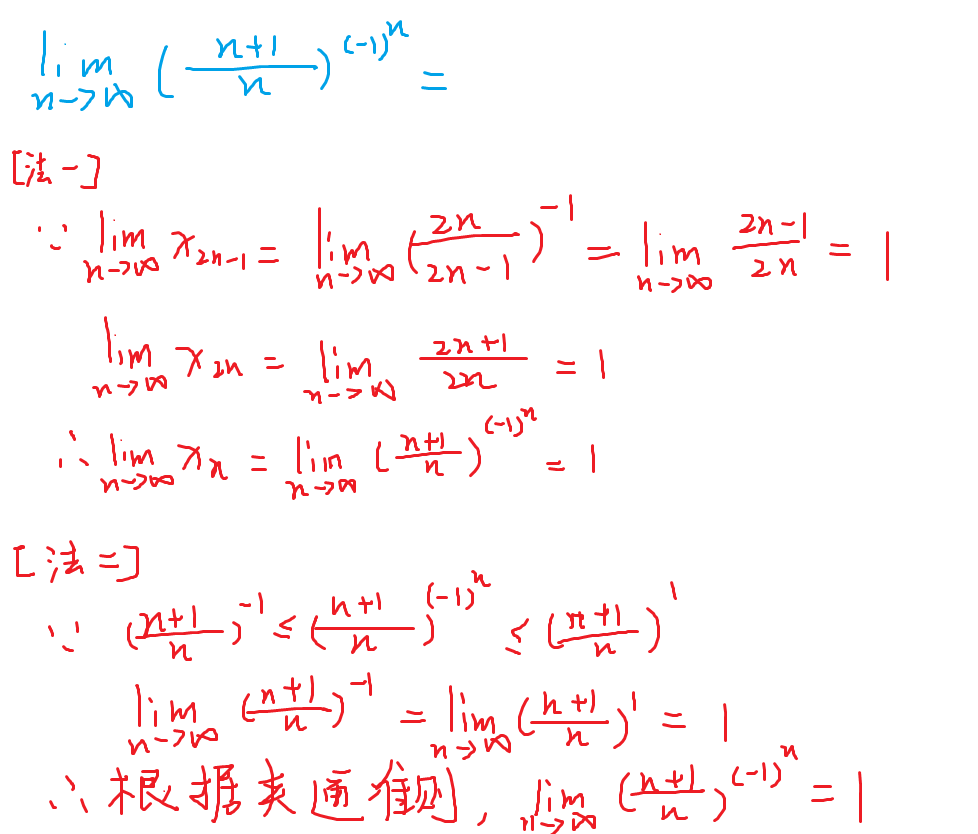 lim_{n->∞} (\frac{n+1}{n})^{(-1)^n} =
[法一]
∵ lim_{n->∞} x_{2n-1} = lim_{n->∞} (\frac{2n}{2n-1})^{-1} = lim_{n->∞} \frac{2n-1}{2n} = 1
lim_{n->∞} x_{2n} = lim_{n->∞} \frac{2n+1}{2n} = 1
∴ lim_{n->∞} x_n = lim_{n->∞} (\frac{n+1}{n})^{(-1)^n} = 1
[法二]
∵ (\frac{n+1}{n})^{-1} ≤ (\frac{n+1}{n})^{(-1)^n} ≤ (\frac{n+1}{n})^1
lim_{n->∞} (\frac{n+1}{n})^{-1} = lim_{n->∞} (\frac{n+1}{n})^1 = 1
∴ 根据夹逼准则, lim_{n->∞} (\frac{n+1}{n})^{(-1)^n} = 1